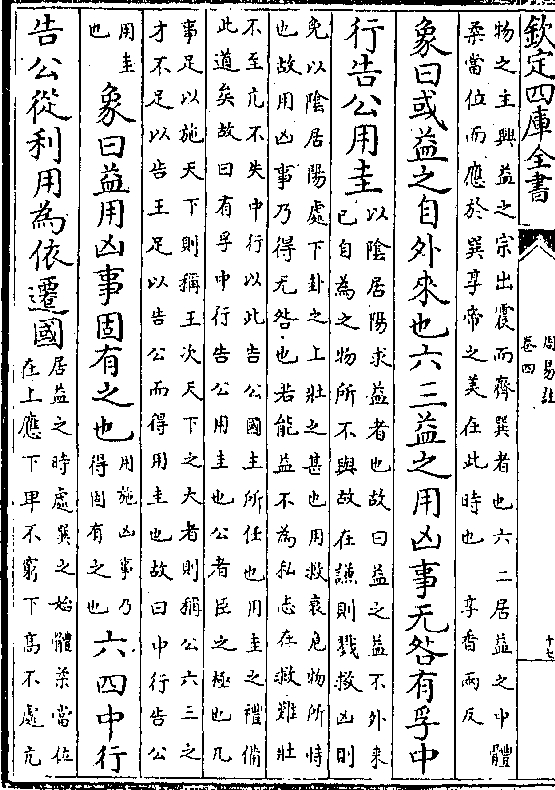 欽定四庫全書
周易註
卷四
十七
物之主興益之宗出震而齊巽者也六二居益之中體
柔當位而應於巽享帝之美在此時也 享香兩反
象曰或益之自外來也六三益之用凶事无咎有孚中
行告公用圭
以陰居陽求益者也故曰益之益不外來
已自為之物所不與故在謙則戮救凶則
免以陰居陽處下卦之上壯之甚也用救衰危物所恃
也故用凶事乃得无咎也若能益不為私志在救難壯
不至亢不失中行以此告公國主所任也用圭之禮備
此道矣故曰有孚中行告公用圭也公者臣之極也凡
事足以施天下則稱王次天下之大者則稱公六三之
才不足以告王足以告公而得用圭也故曰中行告公
用圭
也
象曰益用凶事固有之也
用施凶事乃
得固有之也
六四中行
告公從利用為依遷國
居益之時處巽之始體柔當位
在上應下卑不窮下高不處亢